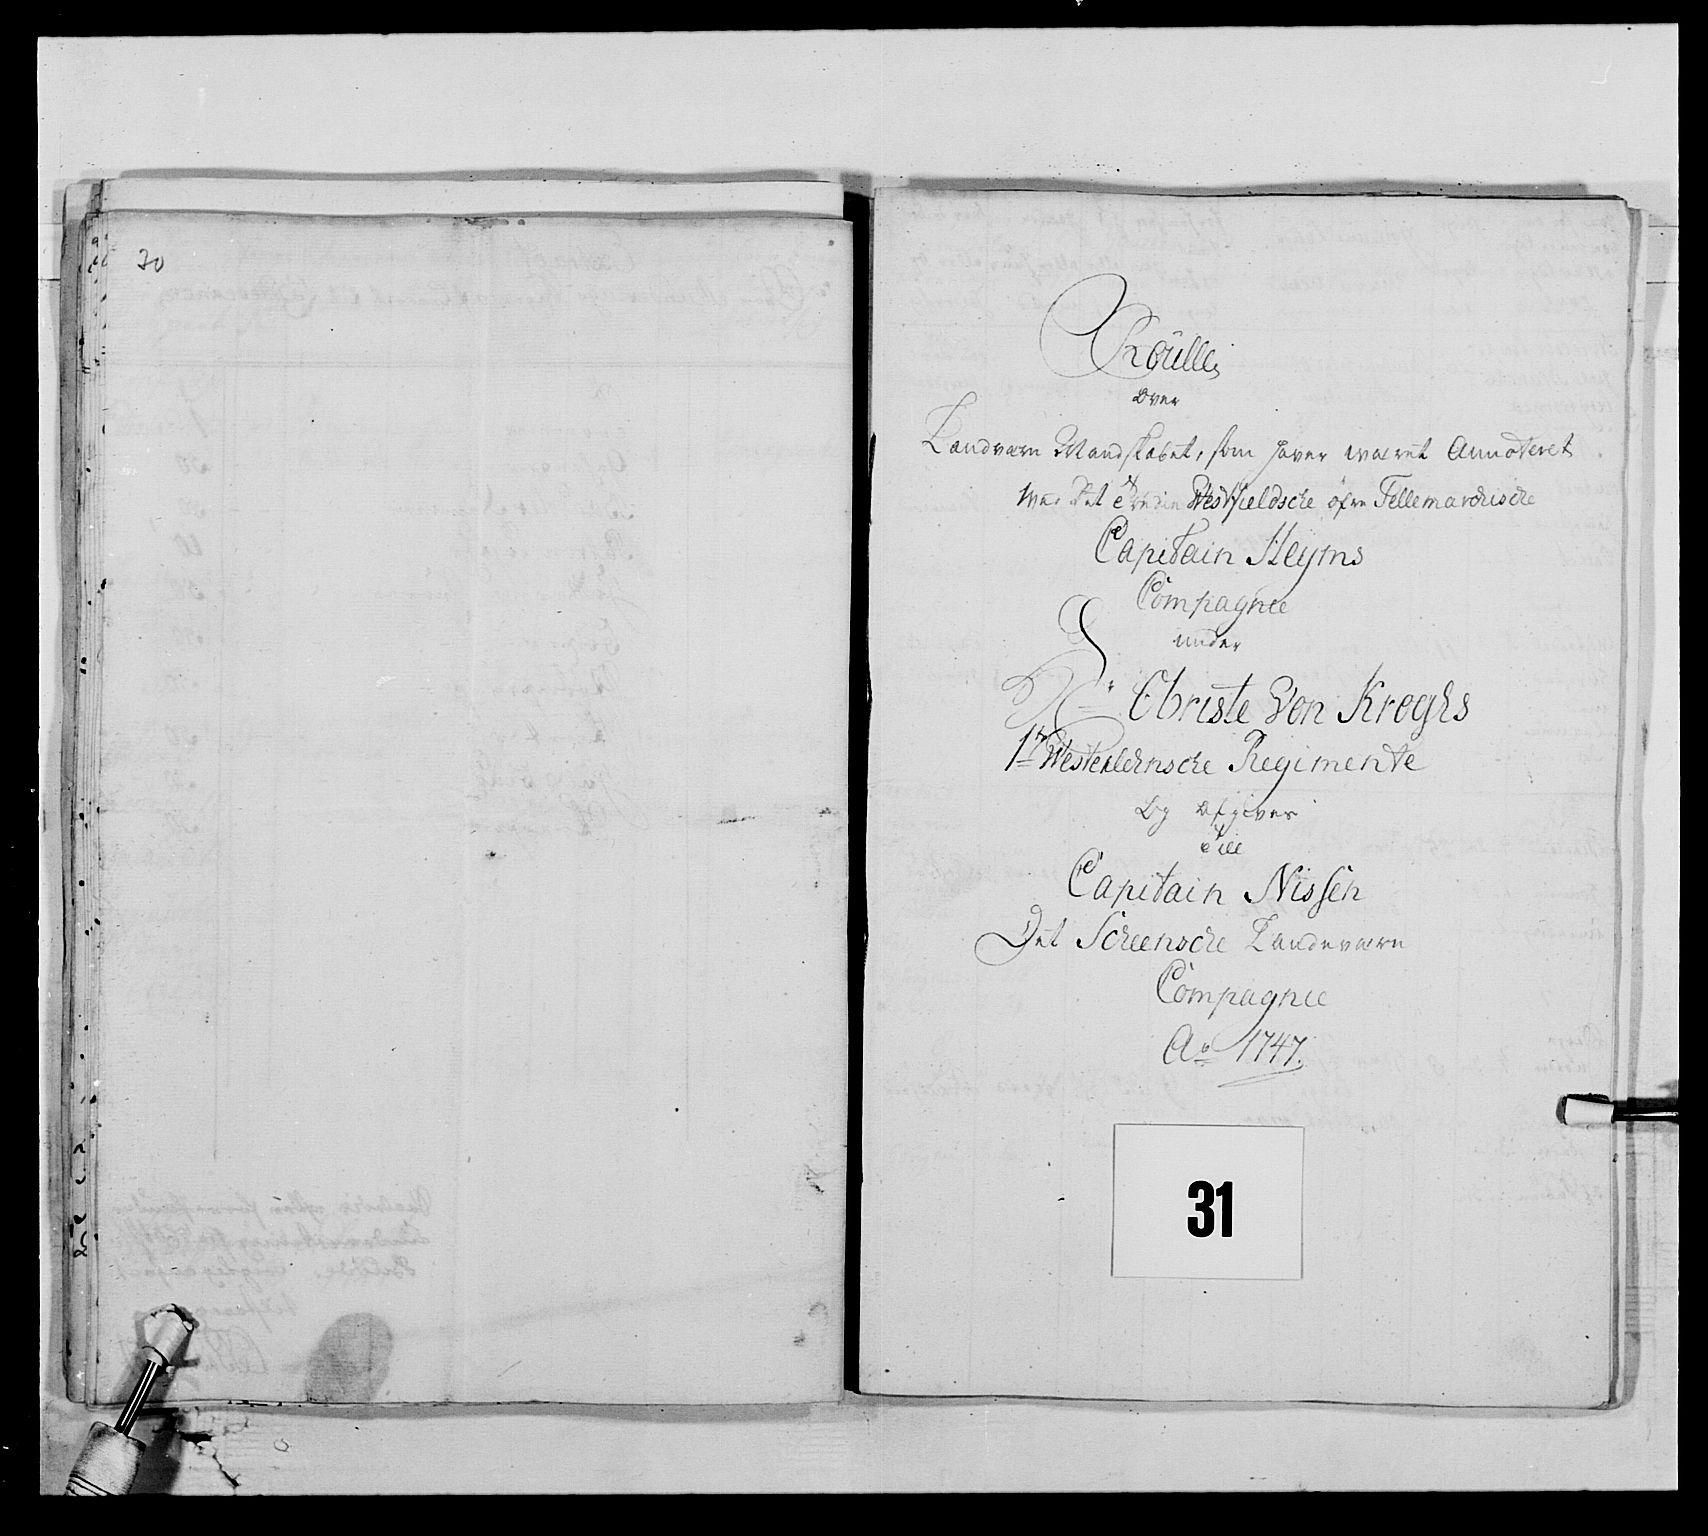 30
Roulle
over
Landværn Mandskabet, som haver wæret Annoteret
wed det Westfieldsche öfre Tellemarchische
Capitain Heyms
Compagnie
under
Hr Obriste Von Kroghs
1te Westerlehnsche Regimente
og afgives
till
Capitain Nissen
Det Scheensche Landeværn
Compagnie
Ao 1747.
31